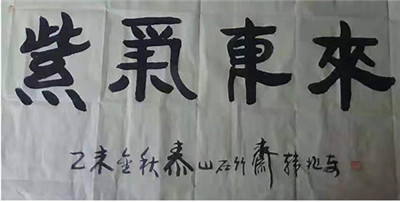 紫氣東來
乙未金秋泰山石竹齋韓